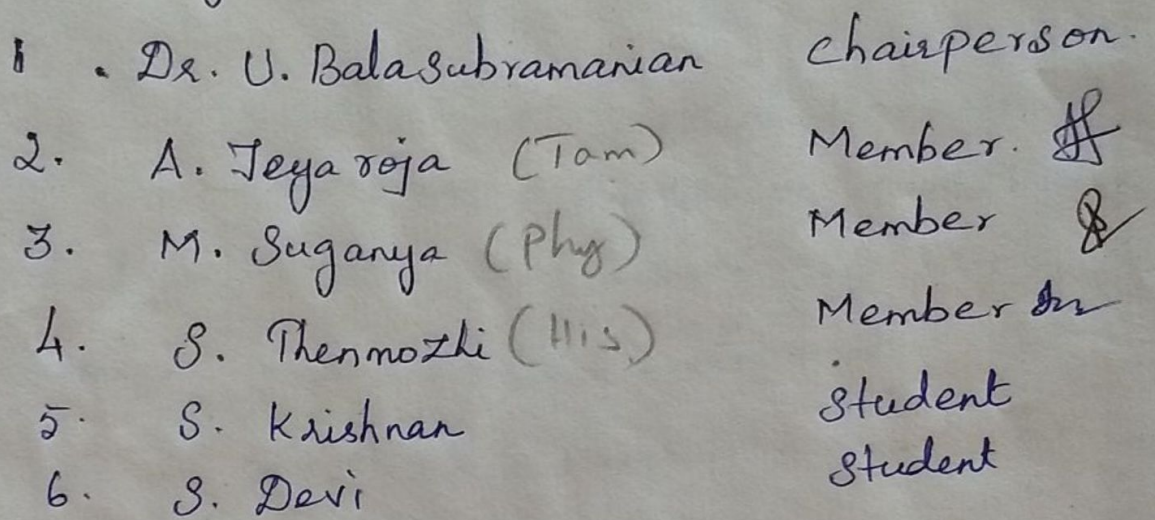 1. Dr. U. Balasubramanian Chairperson.
2. A. Jeya roja (Tam) Member.
3. M. Suganya (Phy) Member
4. S. Thenmozhi (His) Member
5. S. Krishnan Student
6. S. Devi Student